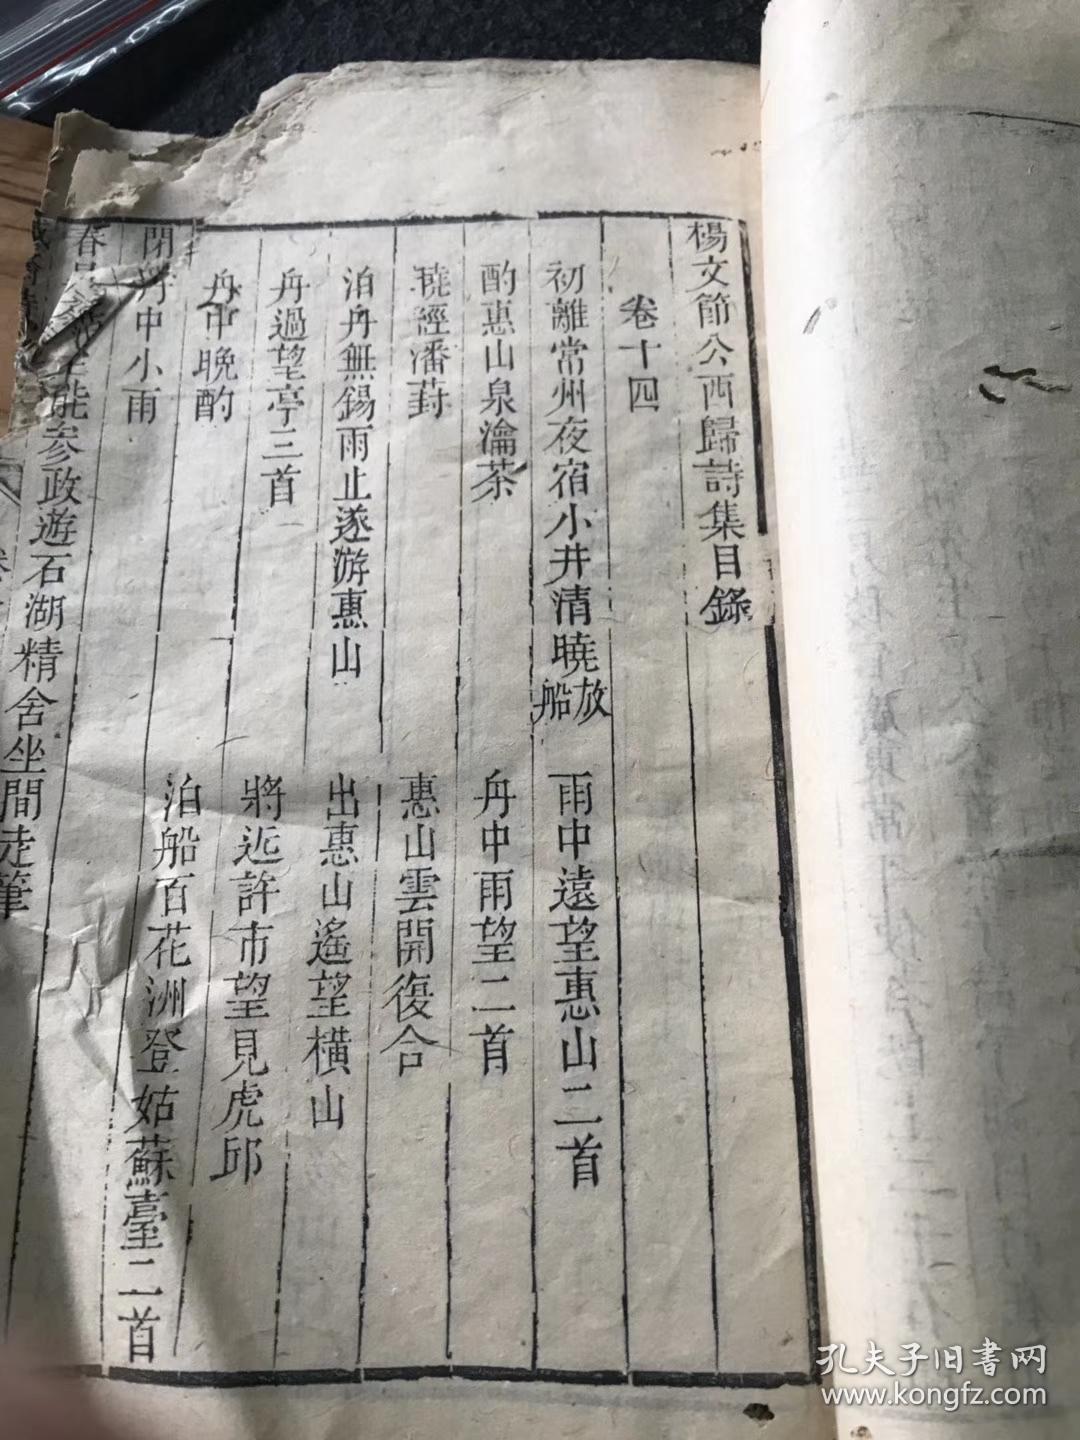 楊文節公西歸詩集目錄
卷十四
初離常州夜宿小井清曉放船
雨中遠望惠山二首
酌惠山泉瀹茶
舟中雨望二首
曉經潘葑
惠山雲開復合
泊舟無錫雨止遂游惠山
出惠山遙望横山
舟過望亭三首
將近許市望見虎邱
舟中晚酌
泊船百花洲登姑蘇臺二首
閉舟中小雨
參政遊石湖精舍坐間走筆
孔夫子旧書网
www.kongfz.com